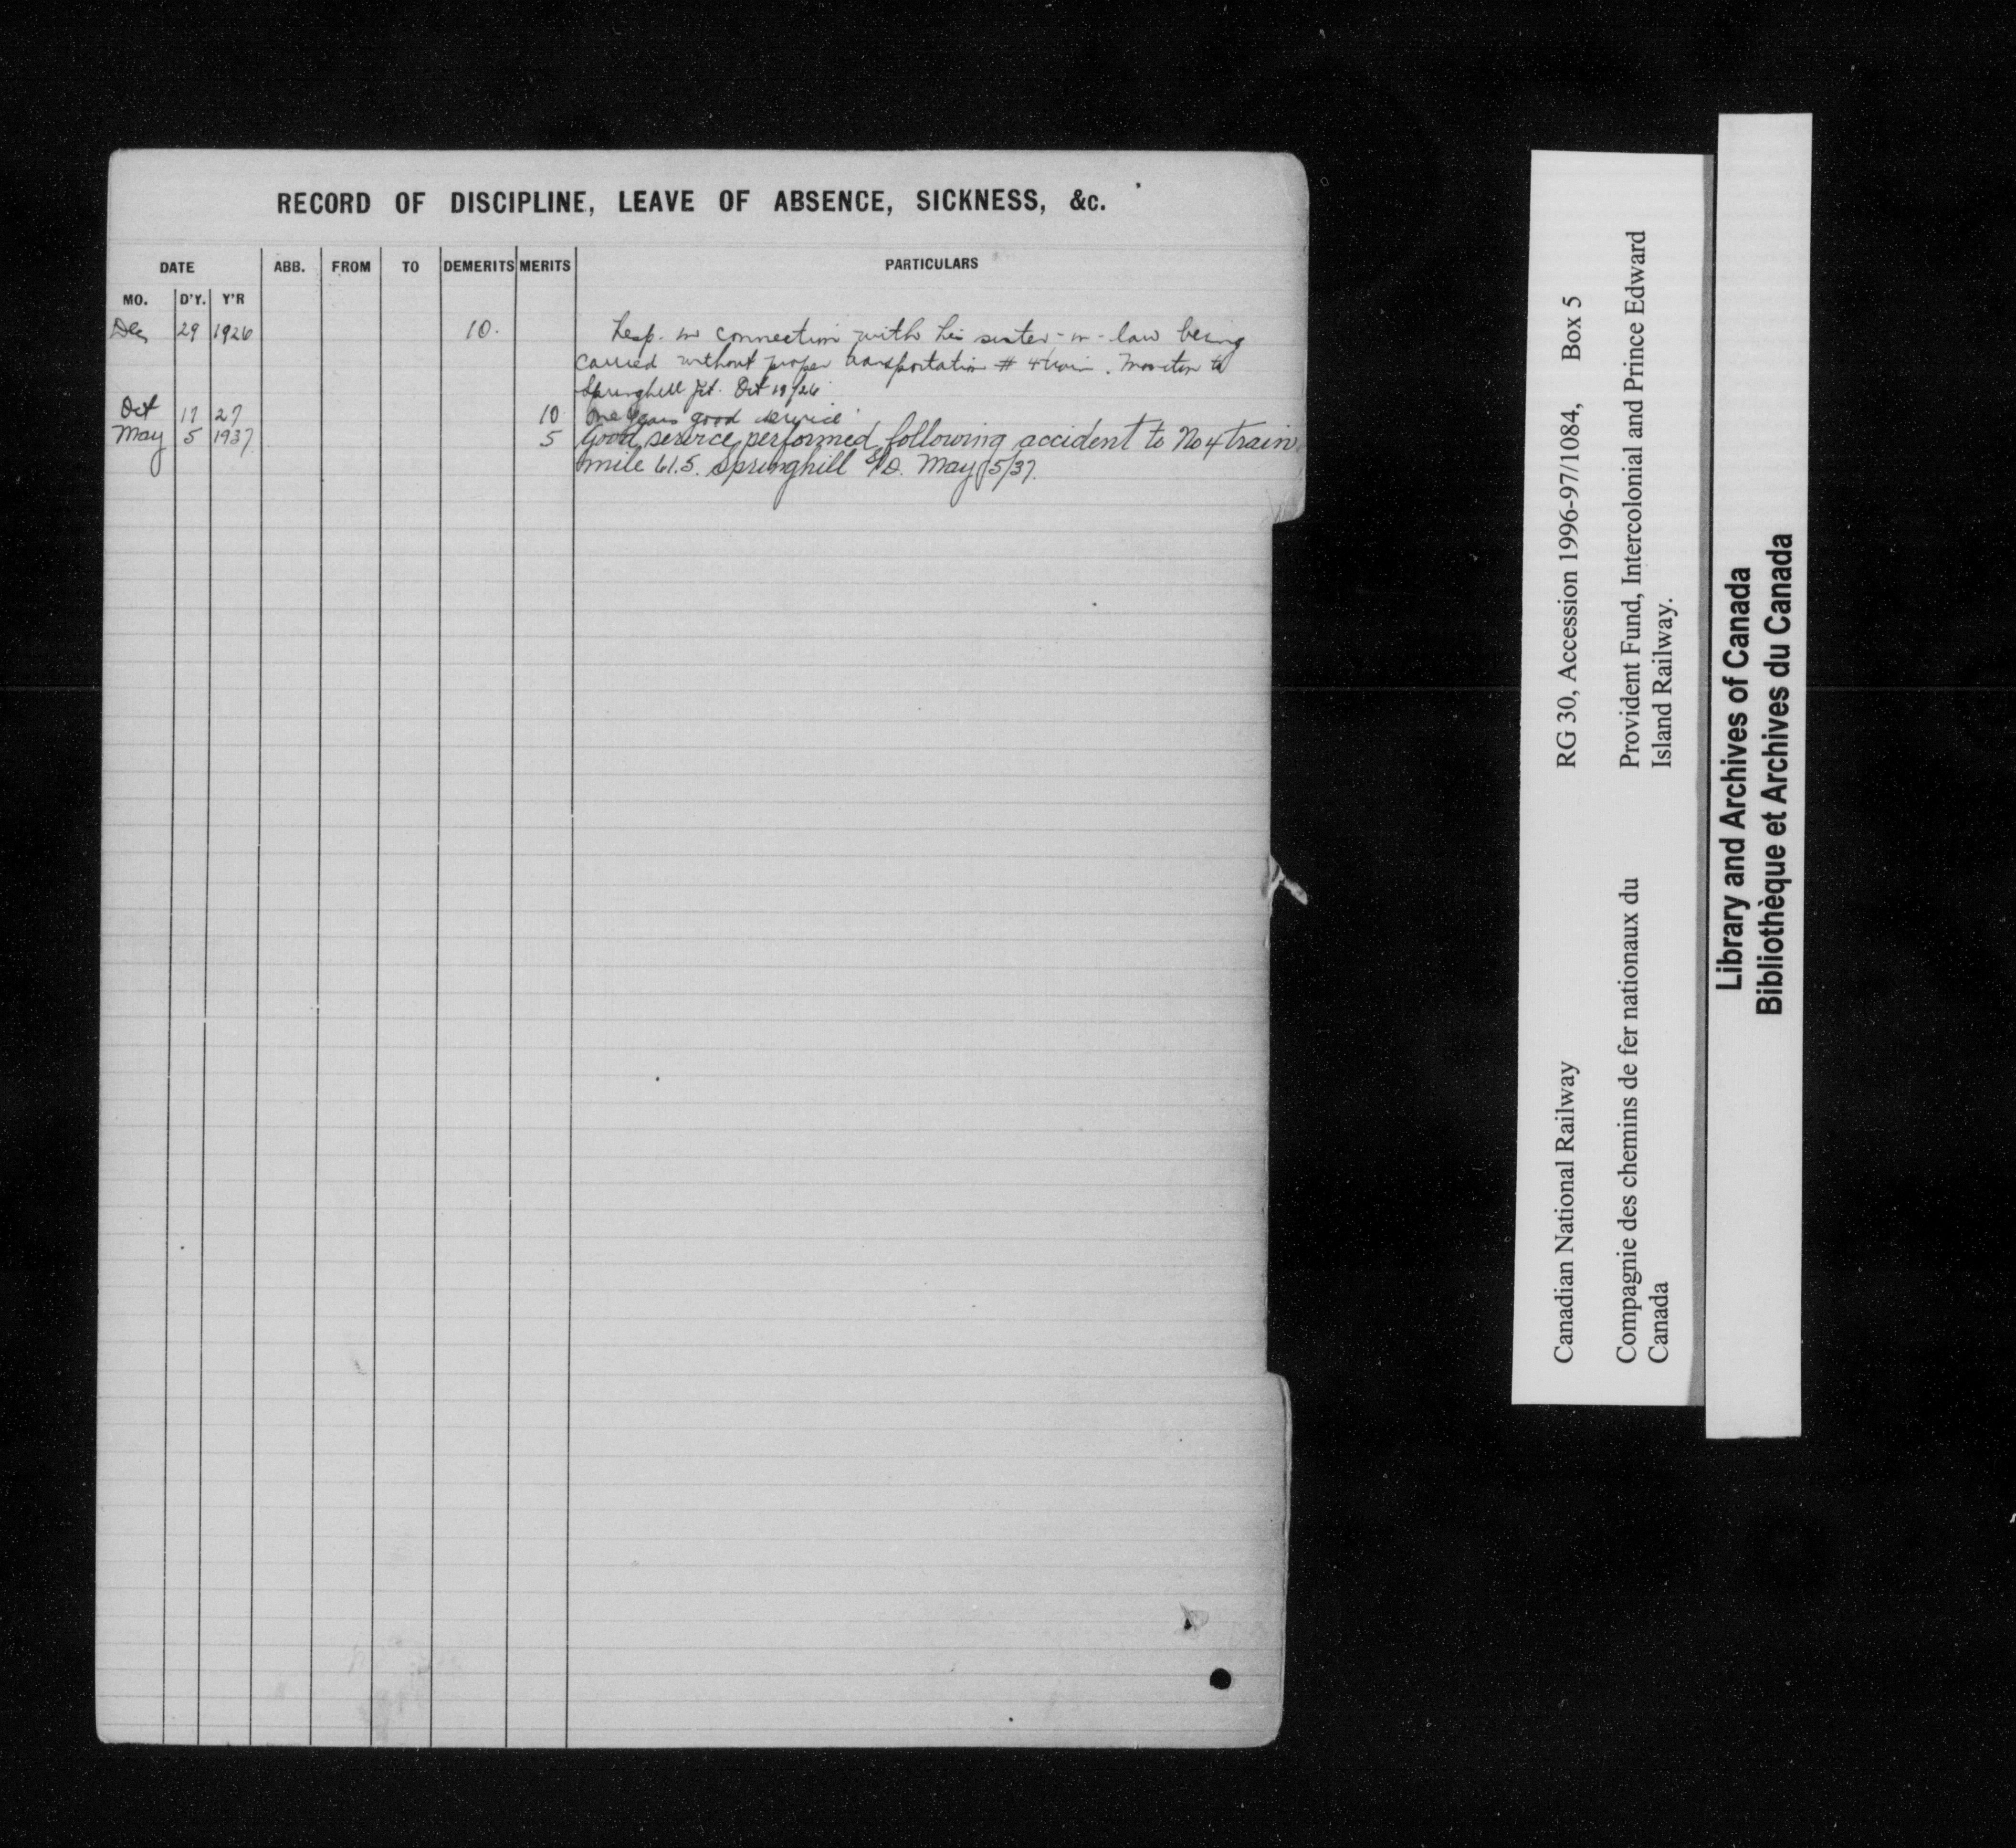 RECORD OF DISCIPLINE, LEAVE OF ABSENCE, SICKNESS, &c.
DATE ABB. FROM TO DEMERITS MERITS PARTICULARS
MO. D'Y. Y'R
Dec 29 1926 10. Resp. in connection with his sister-in-law being
carried without proper transportation # 4 train. Moncton to
Springhill Jct. Oct 19/26
Oct 17 27 10 One years good service
May 5 1937. 5 Good service performed following accident to No 4 train
mile 61.5. Springhill S/D. May 5/37.
Canadian National Railway RG 30, Accession 1996-97/1084, Box 5
Compagnie des chemins de fer nationaux du Provident Fund, Intercolonial and Prince Edward
Canada Island Railway.
Library and Archives of Canada
Bibliothèque et Archives du Canada